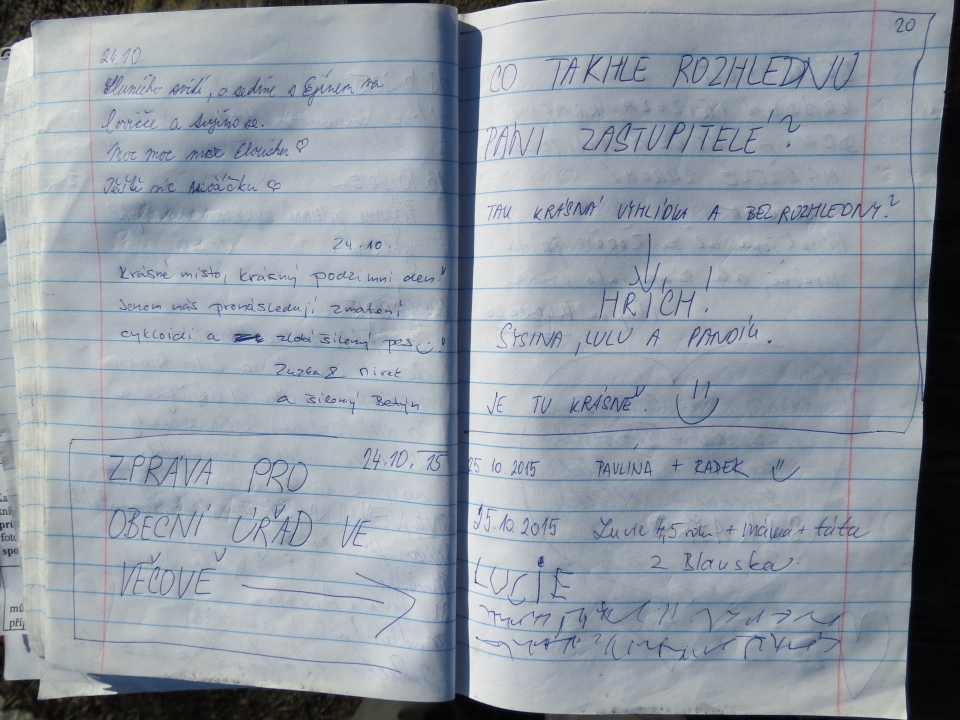 24.10.
Sluníčko svítí, a sedíme s Egínem na
lavičce a
Moc moc moc
Ještě nic ♡
24.10.
Krásné místo, krásný podzimní den!
Jenom nás pronásledují zmatení
cykloidi a zlobí šílený pes!
Zuzka & Mirek
a šílený
24.10.15
ZPRÁVA PRO
OBECNÍ ÚŘAD VE
VĚČOVĚ
20
CO TAKHLE ROZHLEDNU
PÁNI ZASTUPITELÉ?
TAK KRÁSNÁ VYHLÍDKA A BEZ ROZHLEDNY?
HŘÍCH!
SYSINA, LULU A PANDÍK.
JE TU KRÁSNĚ.
25 10 2015 PAVLÍNA + RADEK
25.10.2015 Lucie 4,5 roku + máma + táta
z Blanska.
LUCIE